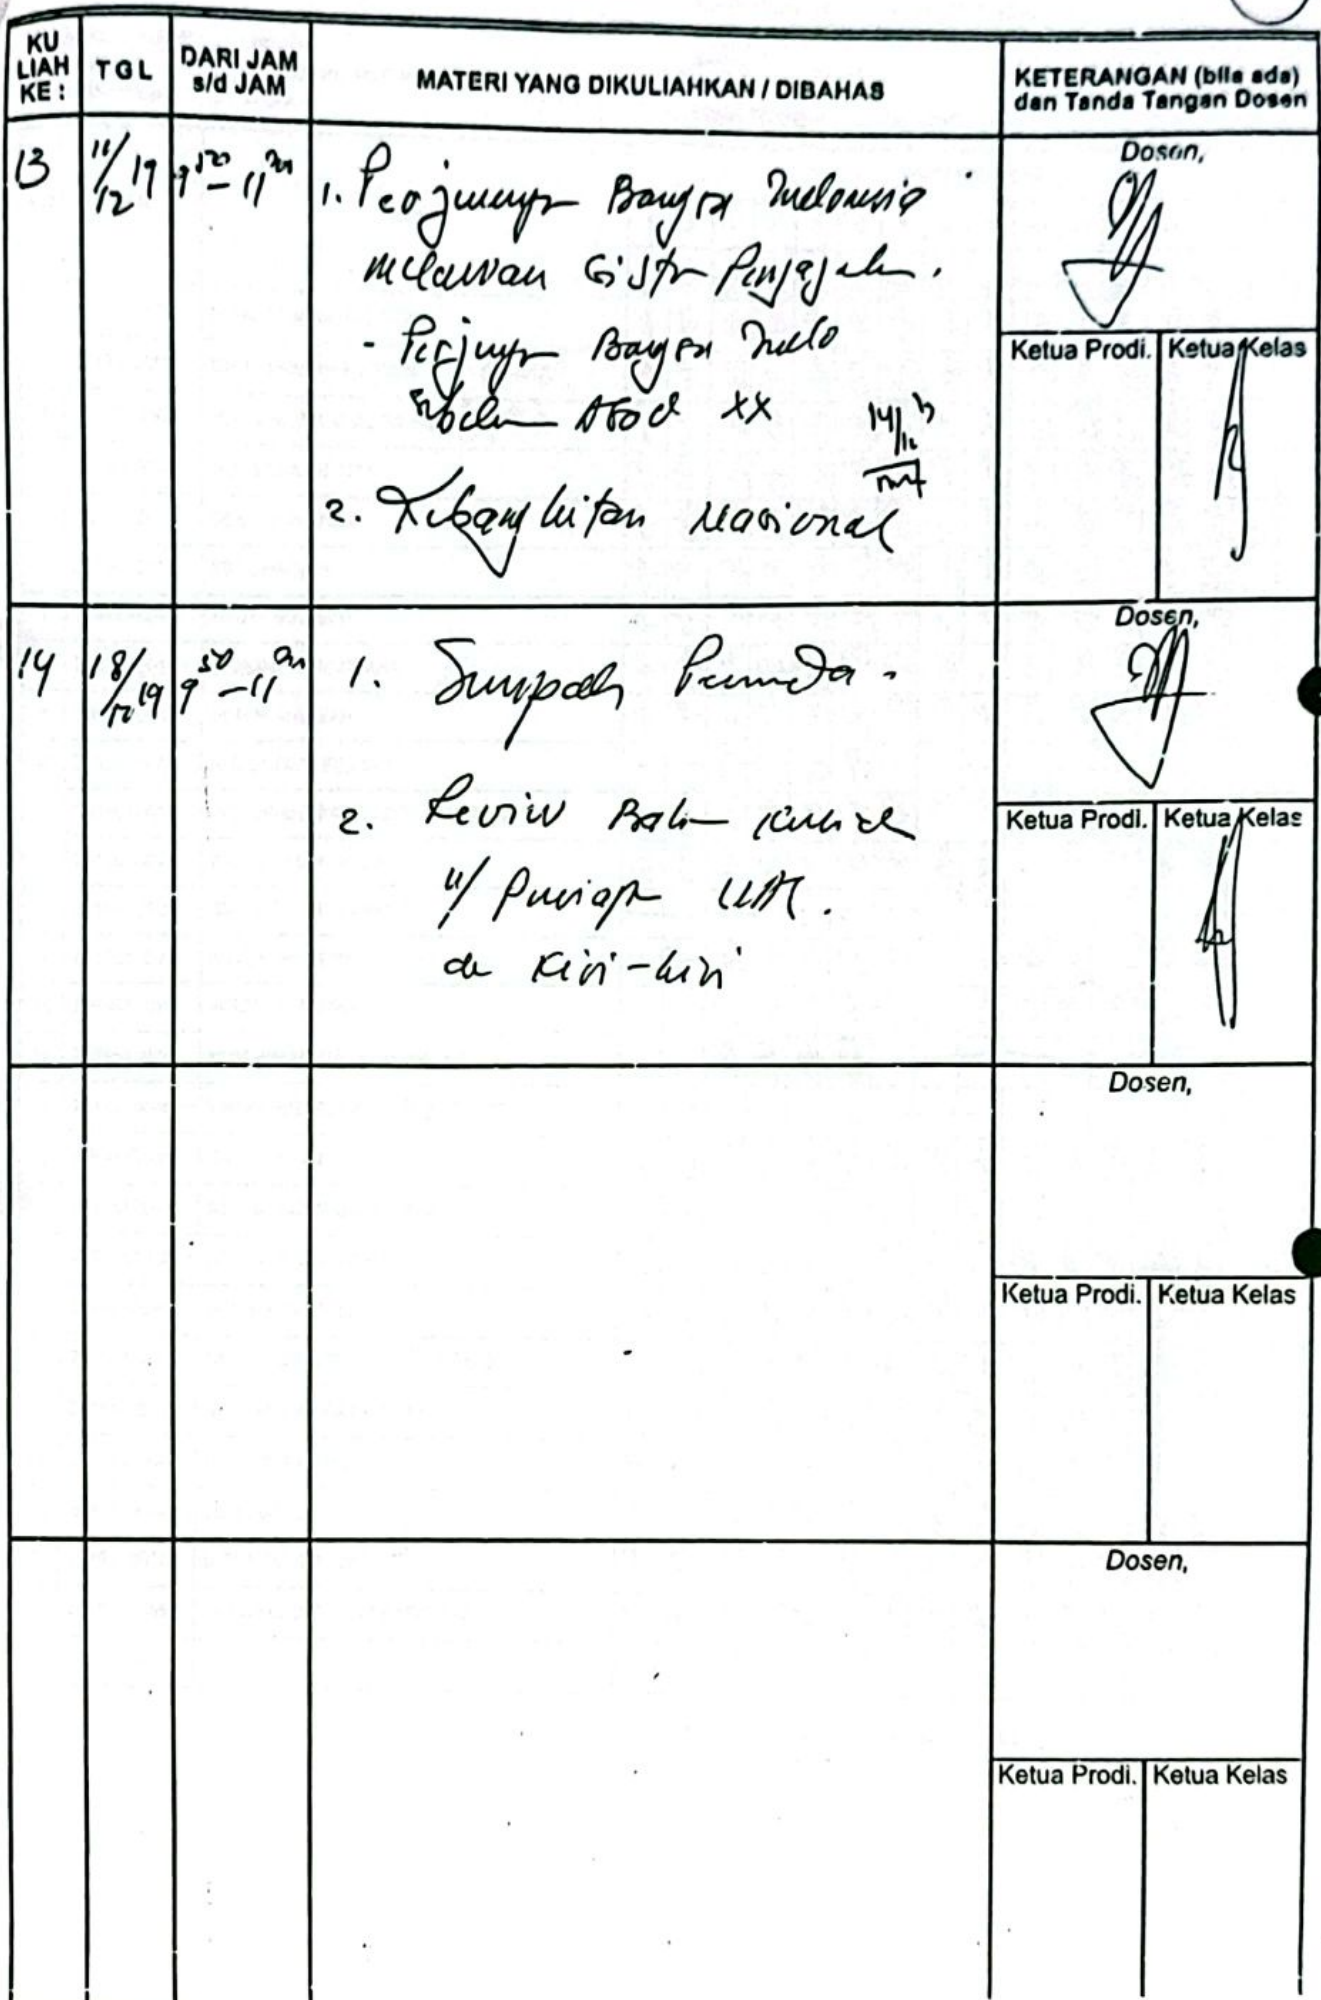 KU LIAH KE :
TGL
DARI JAM s/d JAM
MATERI YANG DIKULIAHKAN / DIBAHAS
KETERANGAN (bila ada) dan Tanda Tangan Dosen
13
11/12 19
9 50 - 11
1. Perjuangan Bangsa Indonesia
melawan Sistem Penjajahan.
- Perjuangan Bangsa Indo
sebelum Abad XX
2. Kebangkitan Nasional
Dosen,
Ketua Prodi.
Ketua Kelas
14
18/12 19
9 50 - 11
1. Sumpah Pemuda.
2. Review Bahan Kuliah
u/ Persiapan UAS.
Kisi-kisi
Dosen,
Ketua Prodi.
Ketua Kelas
Dosen,
Ketua Prodi.
Ketua Kelas
Dosen,
Ketua Prodi.
Ketua Kelas